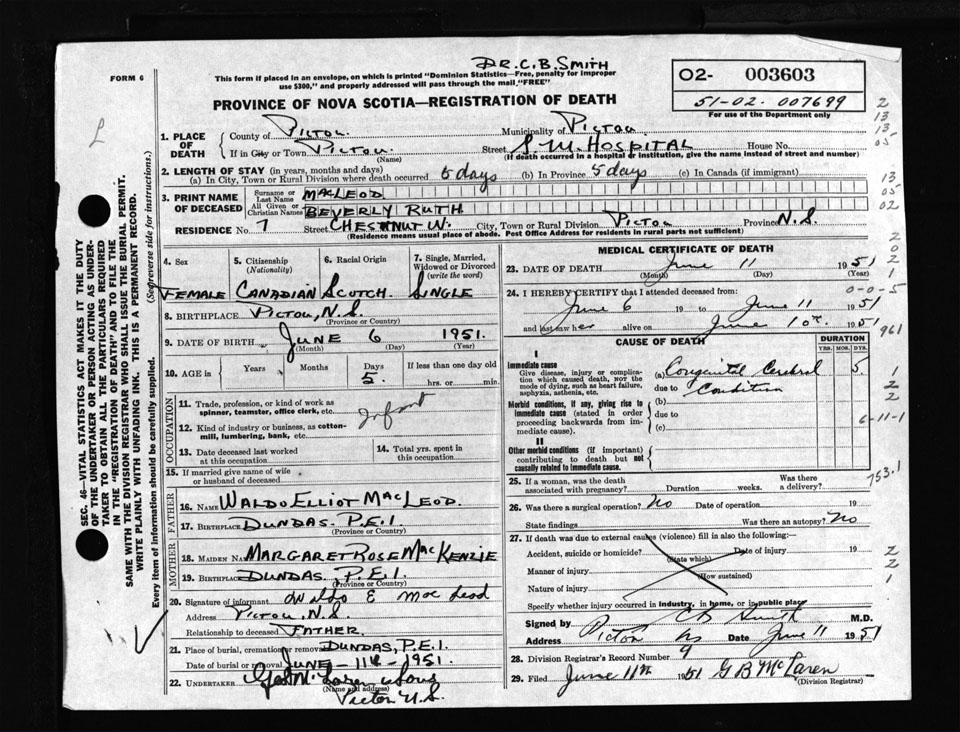 DR. C. B. SMITH
FORM 6
This form if placed in an envelope, on which is printed "Dominion Statistics—Free, penalty for improper
use $300," and properly addressed will pass through the mail "FREE"
02- 003603
51-02. 007699
For use of the Department only
PROVINCE OF NOVA SCOTIA—REGISTRATION OF DEATH
1. PLACE OF DEATH
County of PICTOU. Municipality of PICTOU.
If in City or Town PICTOU. (Name) Street S. M. HOSPITAL House No.
(If death occurred in a hospital or institution, give the name instead of street and number)
2. LENGTH OF STAY (in years, months and days)
(a) In City, Town or Rural Division where death occurred 5 days (b) In Province 5 days (c) In Canada (if immigrant)
3. PRINT NAME OF DECEASED
Surname or Last Name MACLEOD
All Given or Christian Names BEVERLY RUTH
RESIDENCE No. 7 Street CHESTNUT W. City, Town or Rural Division PICTOU Province N.S.
(Residence means usual place of abode. Post Office Address for residents in rural parts not sufficient)
4. Sex
5. Citizenship (Nationality)
6. Racial Origin
7. Single, Married, Widowed or Divorced (write the word)
FEMALE CANADIAN SCOTCH. SINGLE
8. BIRTHPLACE PICTOU, N.S.
(Province or Country)
9. DATE OF BIRTH JUNE 6 1951.
(Month) (Day) (Year)
10. AGE in Years Months Days 5. If less than one day old
hrs. or min.
OCCUPATION
11. Trade, profession, or kind of work as
spinner, teamster, office clerk, etc.
Infant
12. Kind of industry or business, as cotton-
mill, lumbering, bank, etc.
13. Date deceased last worked
at this occupation
14. Total yrs. spent in
this occupation.
15. If married give name of wife
or husband of deceased
FATHER
16. Name WALDO ELLIOT MACLEOD.
17. Birthplace DUNDAS. P.E.I.
(Province or Country)
MOTHER
18. MAIDEN NAME MARGARET ROSE MACKENZIE
19. Birthplace DUNDAS. P.E.I.
(Province or Country)
20. Signature of informant Waldo E MacLeod
Address PICTOU, N.S.
Relationship to deceased FATHER.
21. Place of burial, cremation or removal DUNDAS, P.E.I.
Date of burial or removal JUNE—11th—1951.
22. UNDERTAKER
(Name and address)
Pictou N.S.
MEDICAL CERTIFICATE OF DEATH
23. DATE OF DEATH June 11 1951
(Month) (Day) (Year)
24. I HEREBY CERTIFY that I attended deceased from: 0-0-5
June 6 19 to June 11 1951
and last saw her alive on June 10th. 1951
961
CAUSE OF DEATH DURATION
YRS. MOS. DYS.
I
Immediate cause
Give disease, injury or complica-
tion which caused death, not the
mode of dying, such as heart failure,
asphyxia, asthenia, etc.
(a) Congenital Cerebral 5
due to Condition
Morbid conditions, if any, giving rise to
immediate cause (stated in order
proceeding backwards from im-
mediate cause).
(b)
due to
(c)
6-11-1
II
Other morbid conditions (if important)
contributing to death but not
causally related to immediate cause.
753.1
25. If a woman, was the death
associated with pregnancy? Duration weeks. Was there
a delivery?
26. Was there a surgical operation? No Date of operation 19
State findings Was there an autopsy? No
27. If death was due to external causes (violence) fill in also the following:—
Accident, suicide or homicide? Date of injury 19
(State which)
Manner of injury
(How sustained)
Nature of injury
Specify whether injury occurred in industry, in home, or in public place
Signed by CB Smith M.D.
Address Pictou NS Date June 11 1951
28. Division Registrar's Record Number 9
29. Filed June 11th 1951 G B McLaren
(Division Registrar)
SEC. 46—VITAL STATISTICS ACT MAKES IT THE DUTY
OF THE UNDERTAKER OR PERSON ACTING AS UNDER-
TAKER TO OBTAIN ALL THE PARTICULARS REQUIRED
IN THE "REGISTRATION OF DEATH" AND TO FILE THE
SAME WITH THE DIVISION REGISTRAR WHO SHALL ISSUE THE BURIAL PERMIT.
WRITE PLAINLY WITH UNFADING INK. THIS IS A PERMANENT RECORD.
Every item of information should be carefully supplied. (See reverse side for instructions.)
2
13
13
05
13
05
02
2
0
2
1
1
2
2
2
2
1